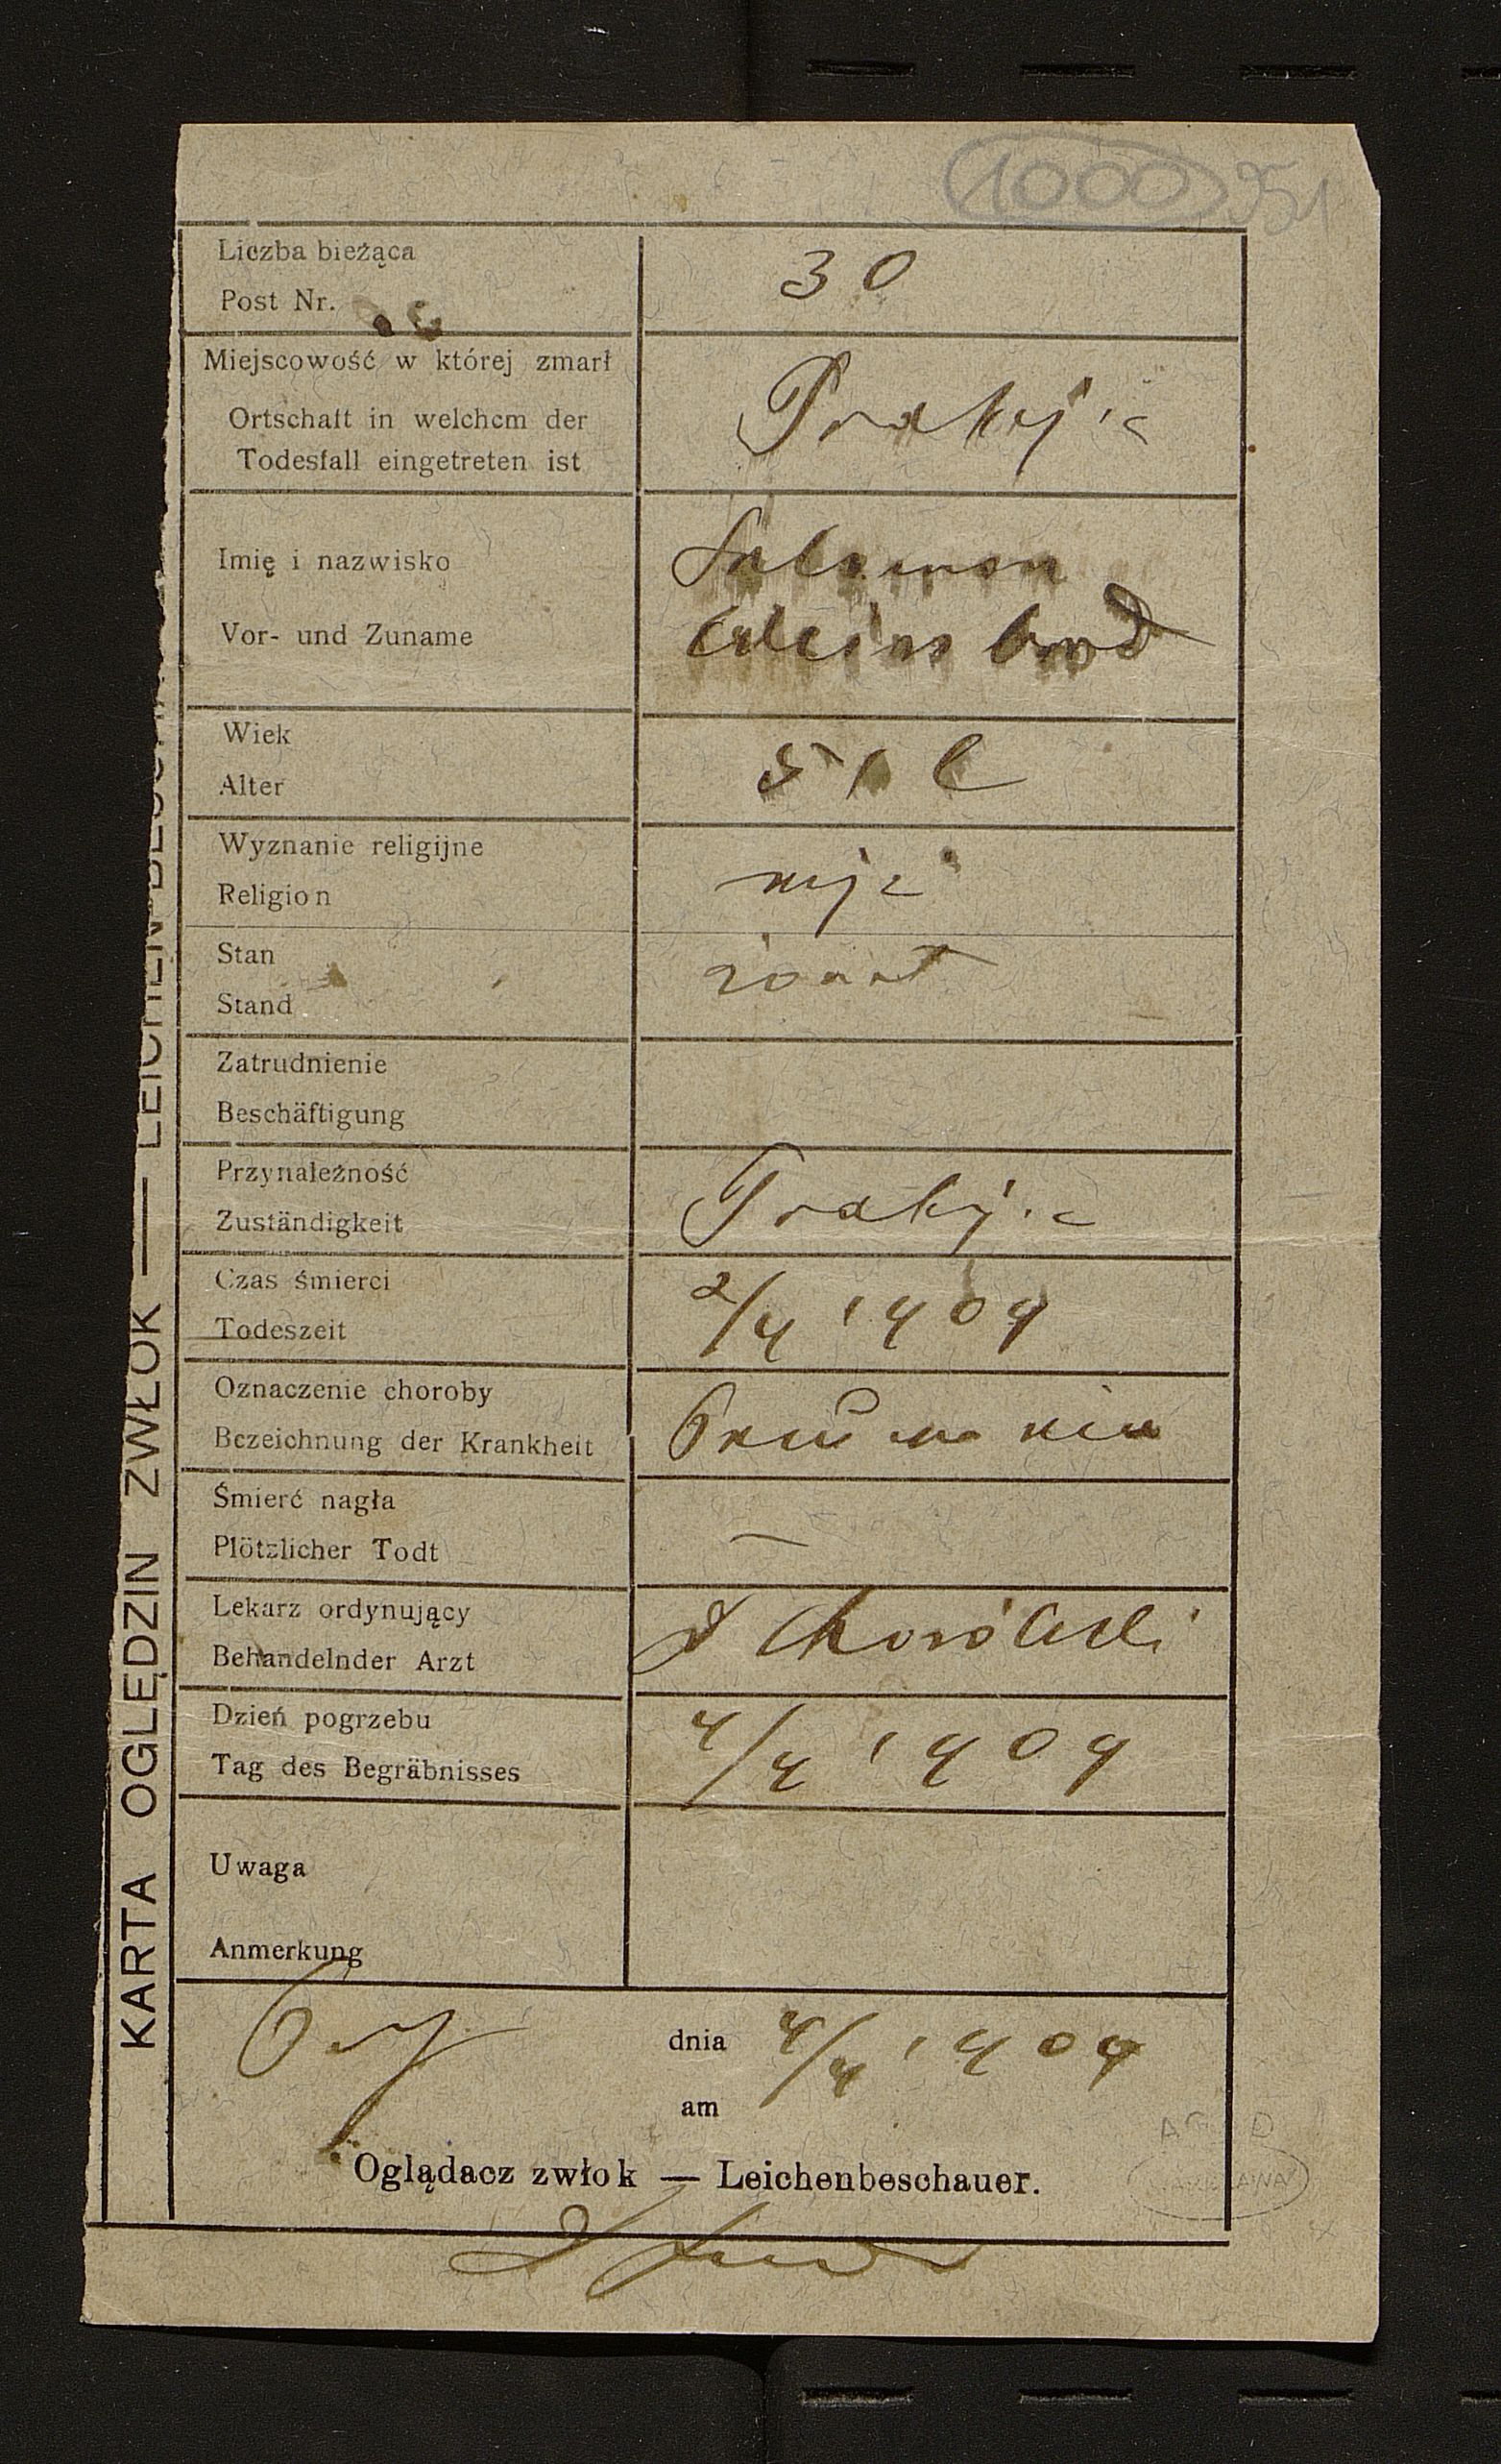 1000 951
Liczba bieżąca
Post Nr.
30
Miejscowość w której zmarł
Ortschaft in welchem der
Todesfall eingetreten ist
Imię i nazwisko
Vor- und Zuname
Salamon
Weinbrod
Wiek
Alter
51 l
Wyznanie religijne
Religion
mojż
Stan
Stand
żonat
Zatrudnienie
Beschäftigung
Przynależność
Zuständigkeit
Czas śmierci
Todeszeit
2/4 1909
Oznaczenie choroby
Bezeichnung der Krankheit
Pneumonia
Śmierć nagła
Plötzlicher Todt
—
Lekarz ordynujący
Behandelnder Arzt
Dzień pogrzebu
Tag des Begräbnisses
4/4 1909
Uwaga
Anmerkung
dnia 4/4 1909
am
Oglądacz zwłok — Leichenbeschauer.
KARTA OGLĘDZIN ZWŁOK — LEICHENBESCHAU
WARSZAWA